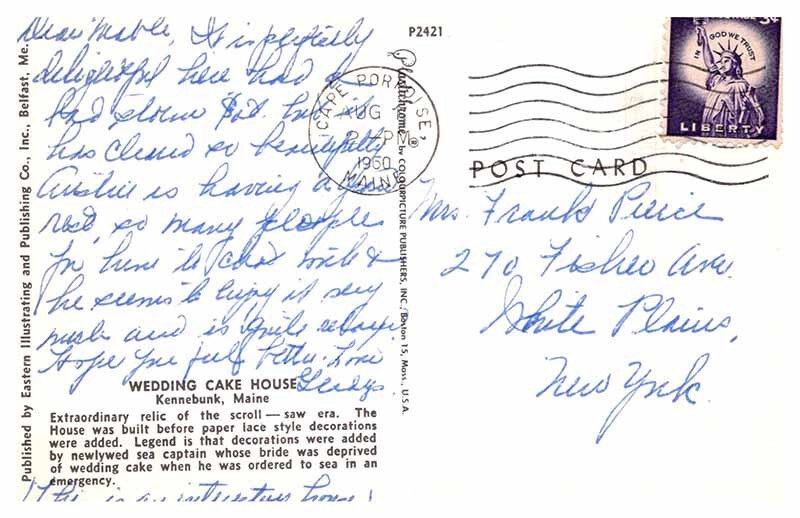 Dear Mable, It is perfectly
delightful here had a
bad storm Sat. but it
has cleared so beautifully
Austin is having a good
rest, so many people
for him to chat with &
he seems to enjoy it very
much and is quite relaxed.
Hope you feel better. Love
Gladys
WEDDING CAKE HOUSE
Kennebunk, Maine
Extraordinary relic of the scroll — saw era. The
House was built before paper lace style decorations
were added. Legend is that decorations were added
by newlywed sea captain whose bride was deprived
of wedding cake when he was ordered to sea in an
emergency.
This is an interesting house!
Published by Eastern Illustrating and Publishing Co., Inc., Belfast, Me.
P2421
Plastichrome® by COLOURPICTURE PUBLISHERS, INC., Boston 15, Mass., U.S.A.
CAPE PORPOISE,
AUG
2 PM
1960
MAINE
3¢
IN GOD WE TRUST
LIBERTY
POST CARD
Mrs. Frank Pierce
270 Fisher Ave.
White Plains,
New York.